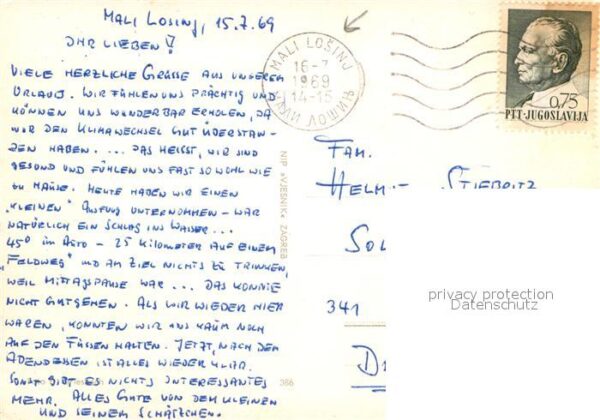 MALI LOSINJ, 15.7.69
IHR LIEBEN!
VIELE HERZLICHE GRÜSSE AUS UNSEREM
URLAUB. WIR FÜHLEN UNS PRÄCHTIG UND
KÖNNEN UNS WUNDERBAR ERHOLEN, DA
WIR DEN KLIMAWECHSEL GUT ÜBERSTAN-
DEN HABEN. ... DAS HEISST, WIR SIND
GESUND UND FÜHLEN UNS FAST SO WOHL WIE
ZU HAUSE. HEUTE HABEN WIR EINEN
"KLEINEN" AUSFLUG UNTERNOMMEN - WAR
NATÜRLICH EIN SCHLAG INS WASSER...
45° IM AUTO - 25 KILOMETER AUF EINEM
"FELDWEG" UND AM ZIEL NICHTS ZU TRINKEN,
WEIL MITTAGSPAUSE WAR ... DAS KONNTE
NICHT GUTGEHEN. ALS WIR WIEDER HIER
WAREN, KONNTEN WIR UNS KAUM NOCH
AUF DEN FÜSSEN HALTEN. JETZT, NACH DEM
ABENDESSEN IST ALLES WIEDER KLAR.
SONST GIBT ES NICHTS INTERESSANTES
MEHR. ALLES GUTE VON DEM KLEINEN
UND SEINEM SCHÄTZCHEN.
NIP »VJESNIK« ZAGREB
386
MALI LOŠINJ
16-7
1969
14-15
МАЛИ ЛОШИЊ
0,75
PTT-JUGOSLAVIJA
FAM.
HELM
SOL
341
privacy protection
Datenschutz